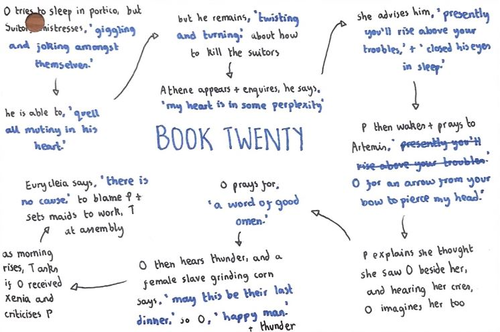 O tries to sleep in portico, but
Suitors' mistresses, "giggling
and joking amongst
themselves."
he is able to, "quell
all mutiny in his
heart."
but he remains, "twisting
and turning," about how
to kill the suitors
Athene appears + enquires, he says,
"my heart is in some perplexity"
she advises him, "presently
you'll rise above your
troubles," + "closed his eyes
in sleep."
P then wakes + prays to
Artemis, "presently you'll
rise above your troubles"
O for an arrow from your
bow to pierce my head."
P explains she thought
she saw O beside her,
and hearing her cries,
O imagines her too
BOOK TWENTY
O prays for,
"a word of good
omen."
O then hears thunder, and a
female slave grinding corn
says, "may this be their last
dinner," so O, "happy man."
+ thunder
as morning
rises, T asks
is O received
xenia and
criticises P
Eurycleia says, "there is
no cause," to blame P +
sets maids to work, T
at assembly